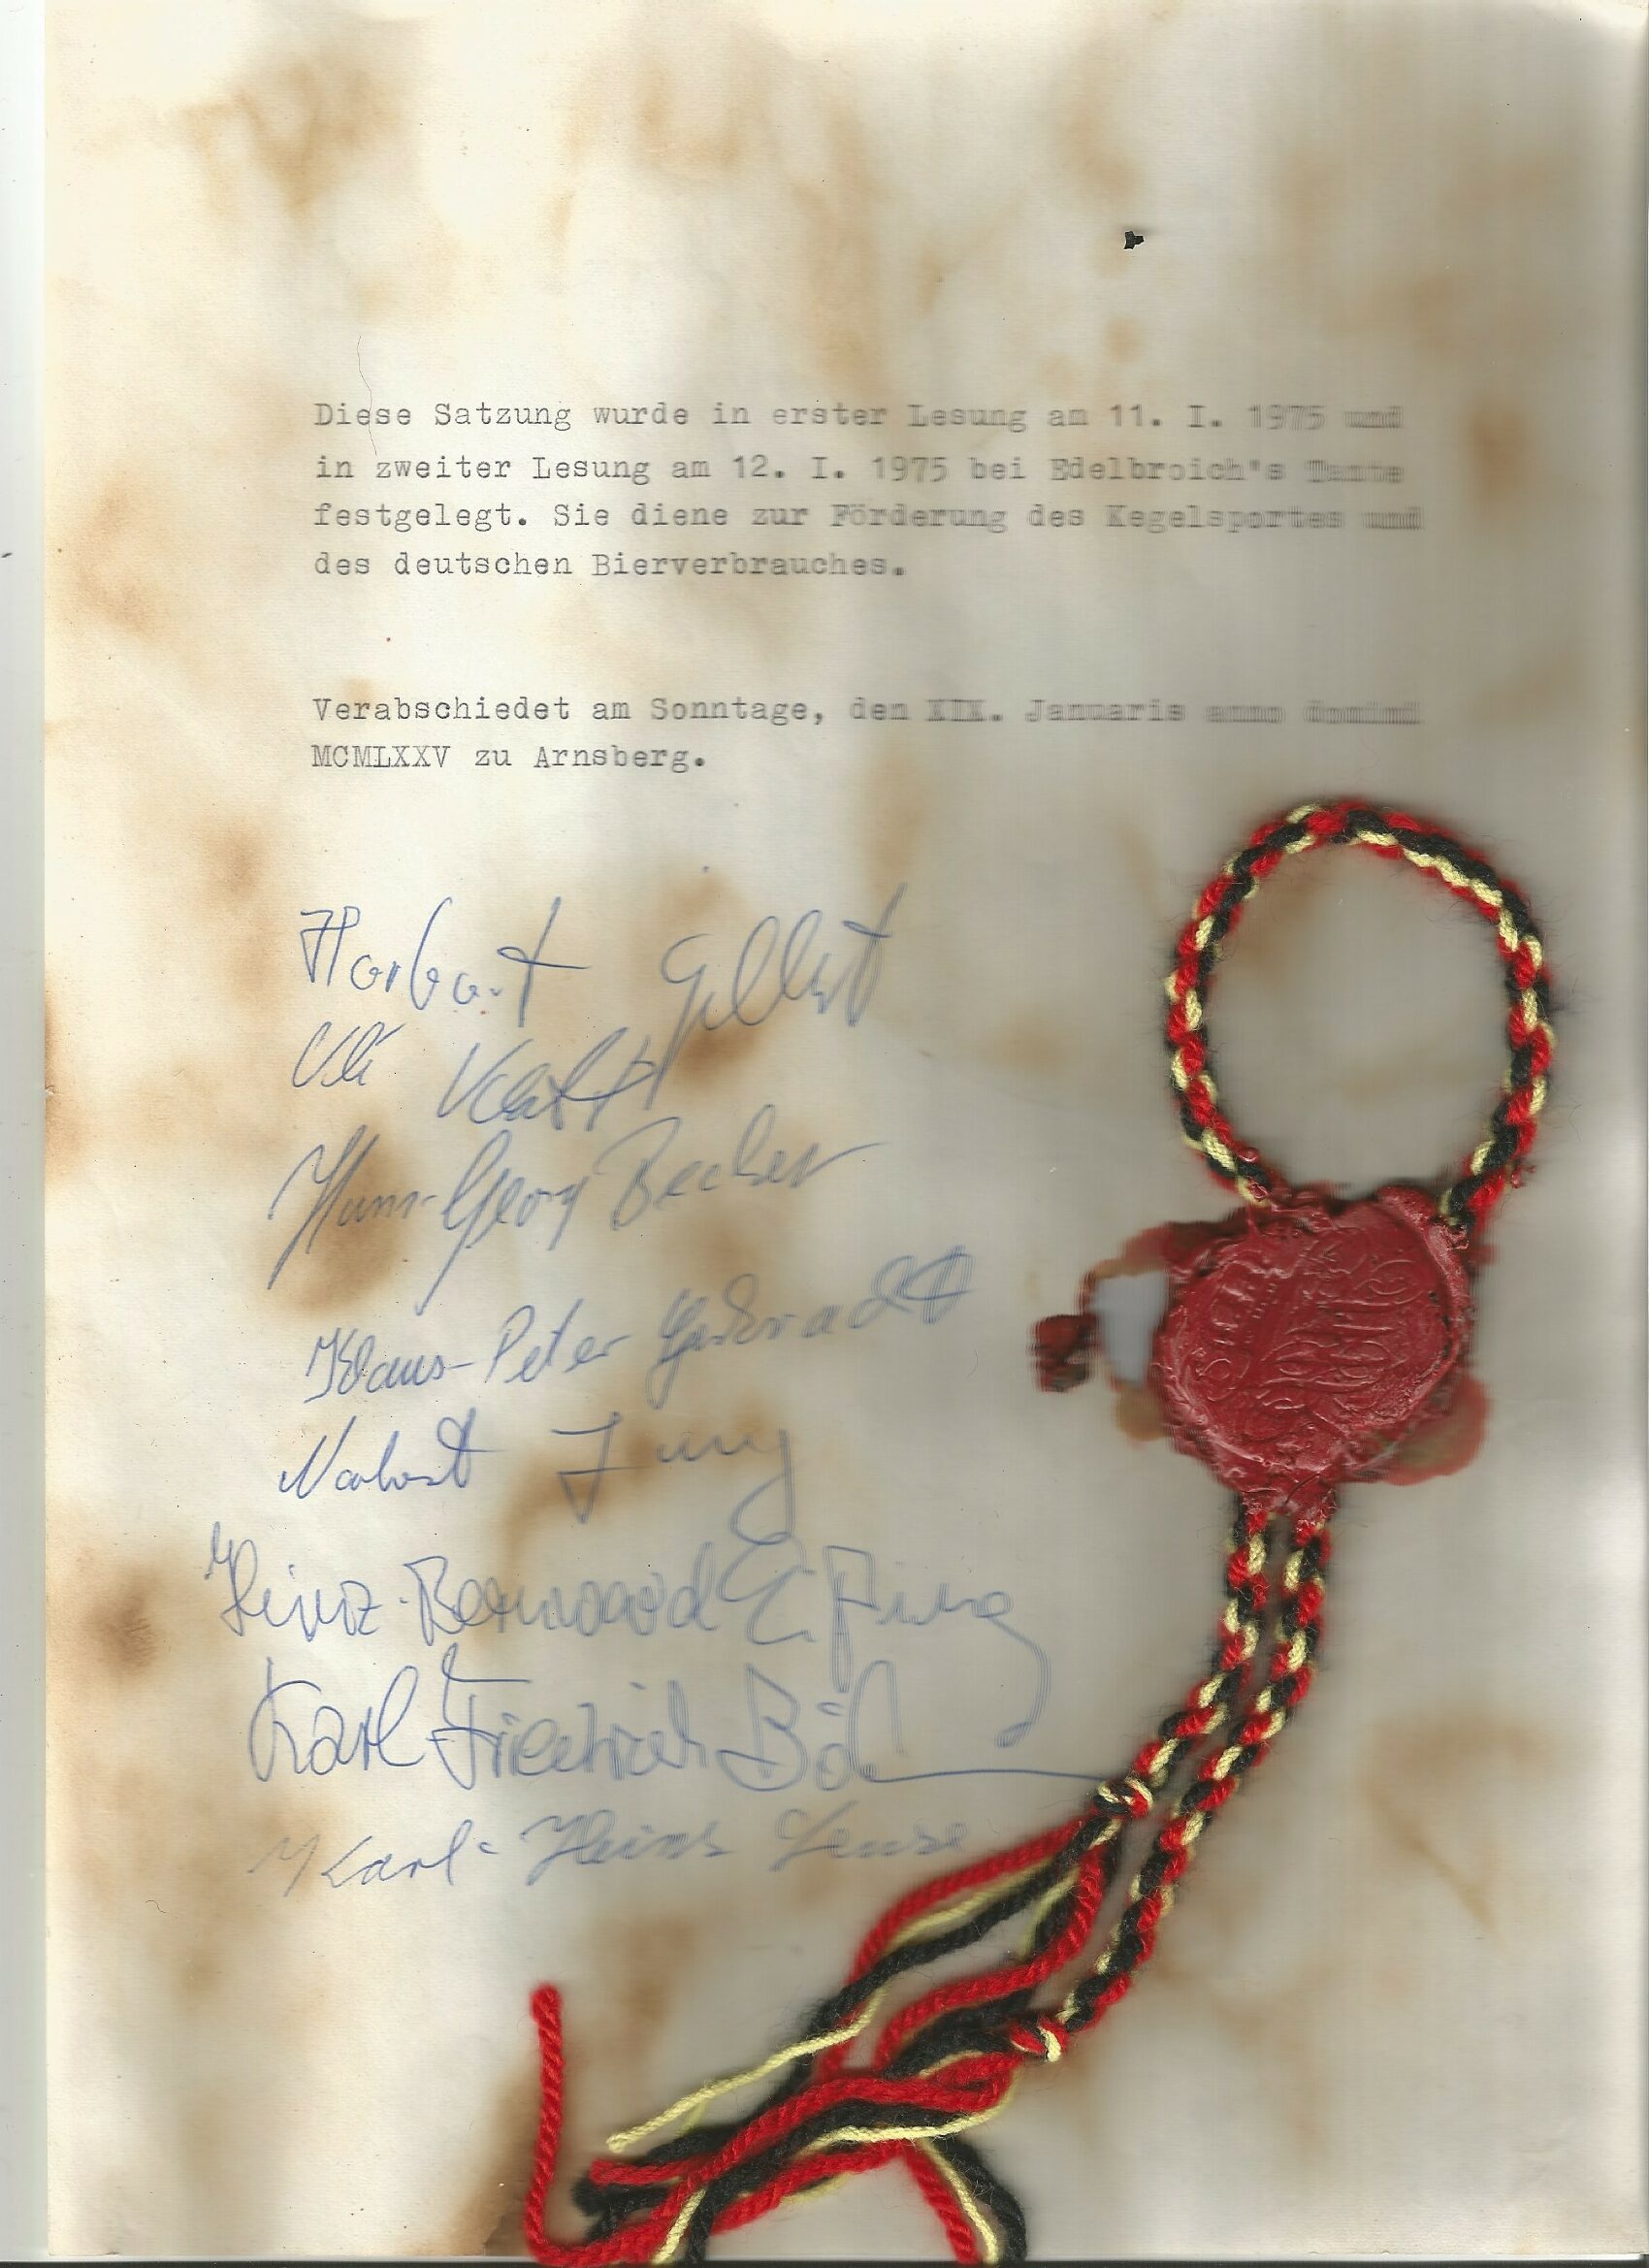 Diese Satzung wurde in erster Lesung am 11. I. 1975 und
in zweiter Lesung am 12. I. 1975 bei Edelbroich's Tante
festgelegt. Sie diene zur Förderung des Kegelsportes und
des deutschen Bierverbrauches.
Verabschiedet am Sonntage, den XIX. Januaris anno domini
MCMLXXV zu Arnsberg.
Uli
Hans-Georg Becker
Klaus-Peter
Norbert Jung
Heinz-Bernward
Karl Friedrich
Karl-Heinz